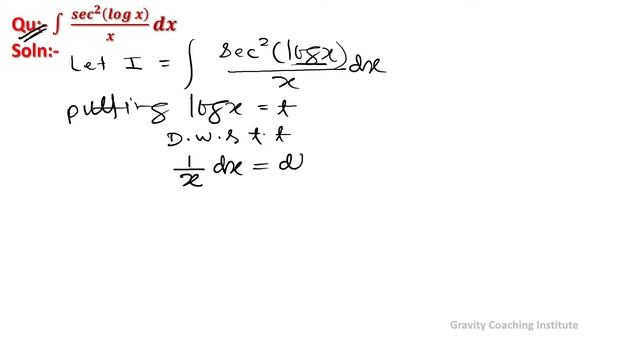 Qu:- ∫ sec²(log x)/x dx
Soln:-
Let I = ∫ sec²(logx)/x dx
putting logx = t
D.w.s t.t
1/x dx = d
Gravity Coaching Institute